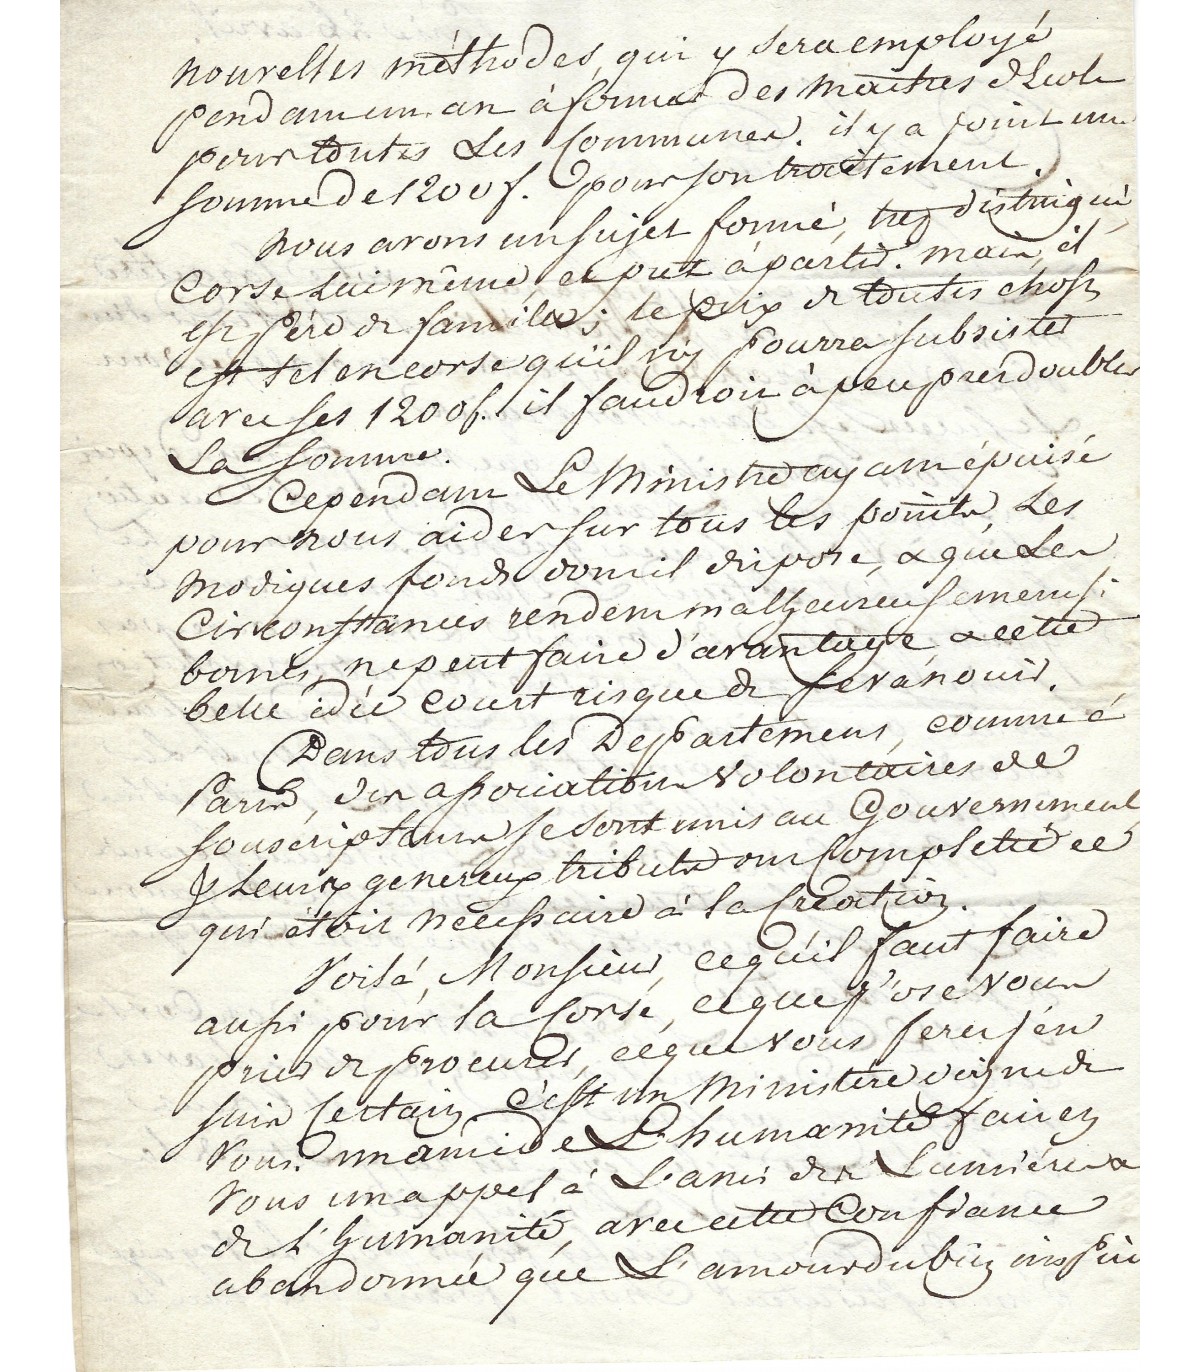 nouvelles méthodes, qui y sera employé
pendant un an à former des maitres d'Ecole
pour toutes les Communes. il y a joint une
somme de 1200f. pour son traitement.
nous avons un sujet formé, très distingué,
Corse lui même, et pret à partir. mais, il
est Père de famille; le prix de toutes choses
est tel en corse qu'il n'y pourra subsister
avec ses 1200f. il faudroit à peu près doubler
La somme.
Cependant Le Ministre ayant épuisé
pour nous aider sur tous les points, Les
modiques fonds dont il dispose, & que Les
Circonstances rendent malheureusement si
bornés, ne peut faire d'avantage & cette
belle idée court risque de s'évanouir.
Dans tous les Departemens, comme à
Paris, des associations volontaires de
souscripteurs se sont unis au Gouvernement,
& Leurs genereux tributs ont Completté ce
qui étoit nécessaire à la Création.
Voilà, Monsieur, ce qu'il faut faire
aussi pour la Corse, ce que j'ose vous
prier de procurer, ce que vous ferez j'en
suis Certain. C'est un Ministère digne de
Vous. un ami de L'humanité fait en
Vous un appel à L'ami des Lumières &
de L'humanité, avec cette Confiance
abandonnée que L'amour du bien inspire